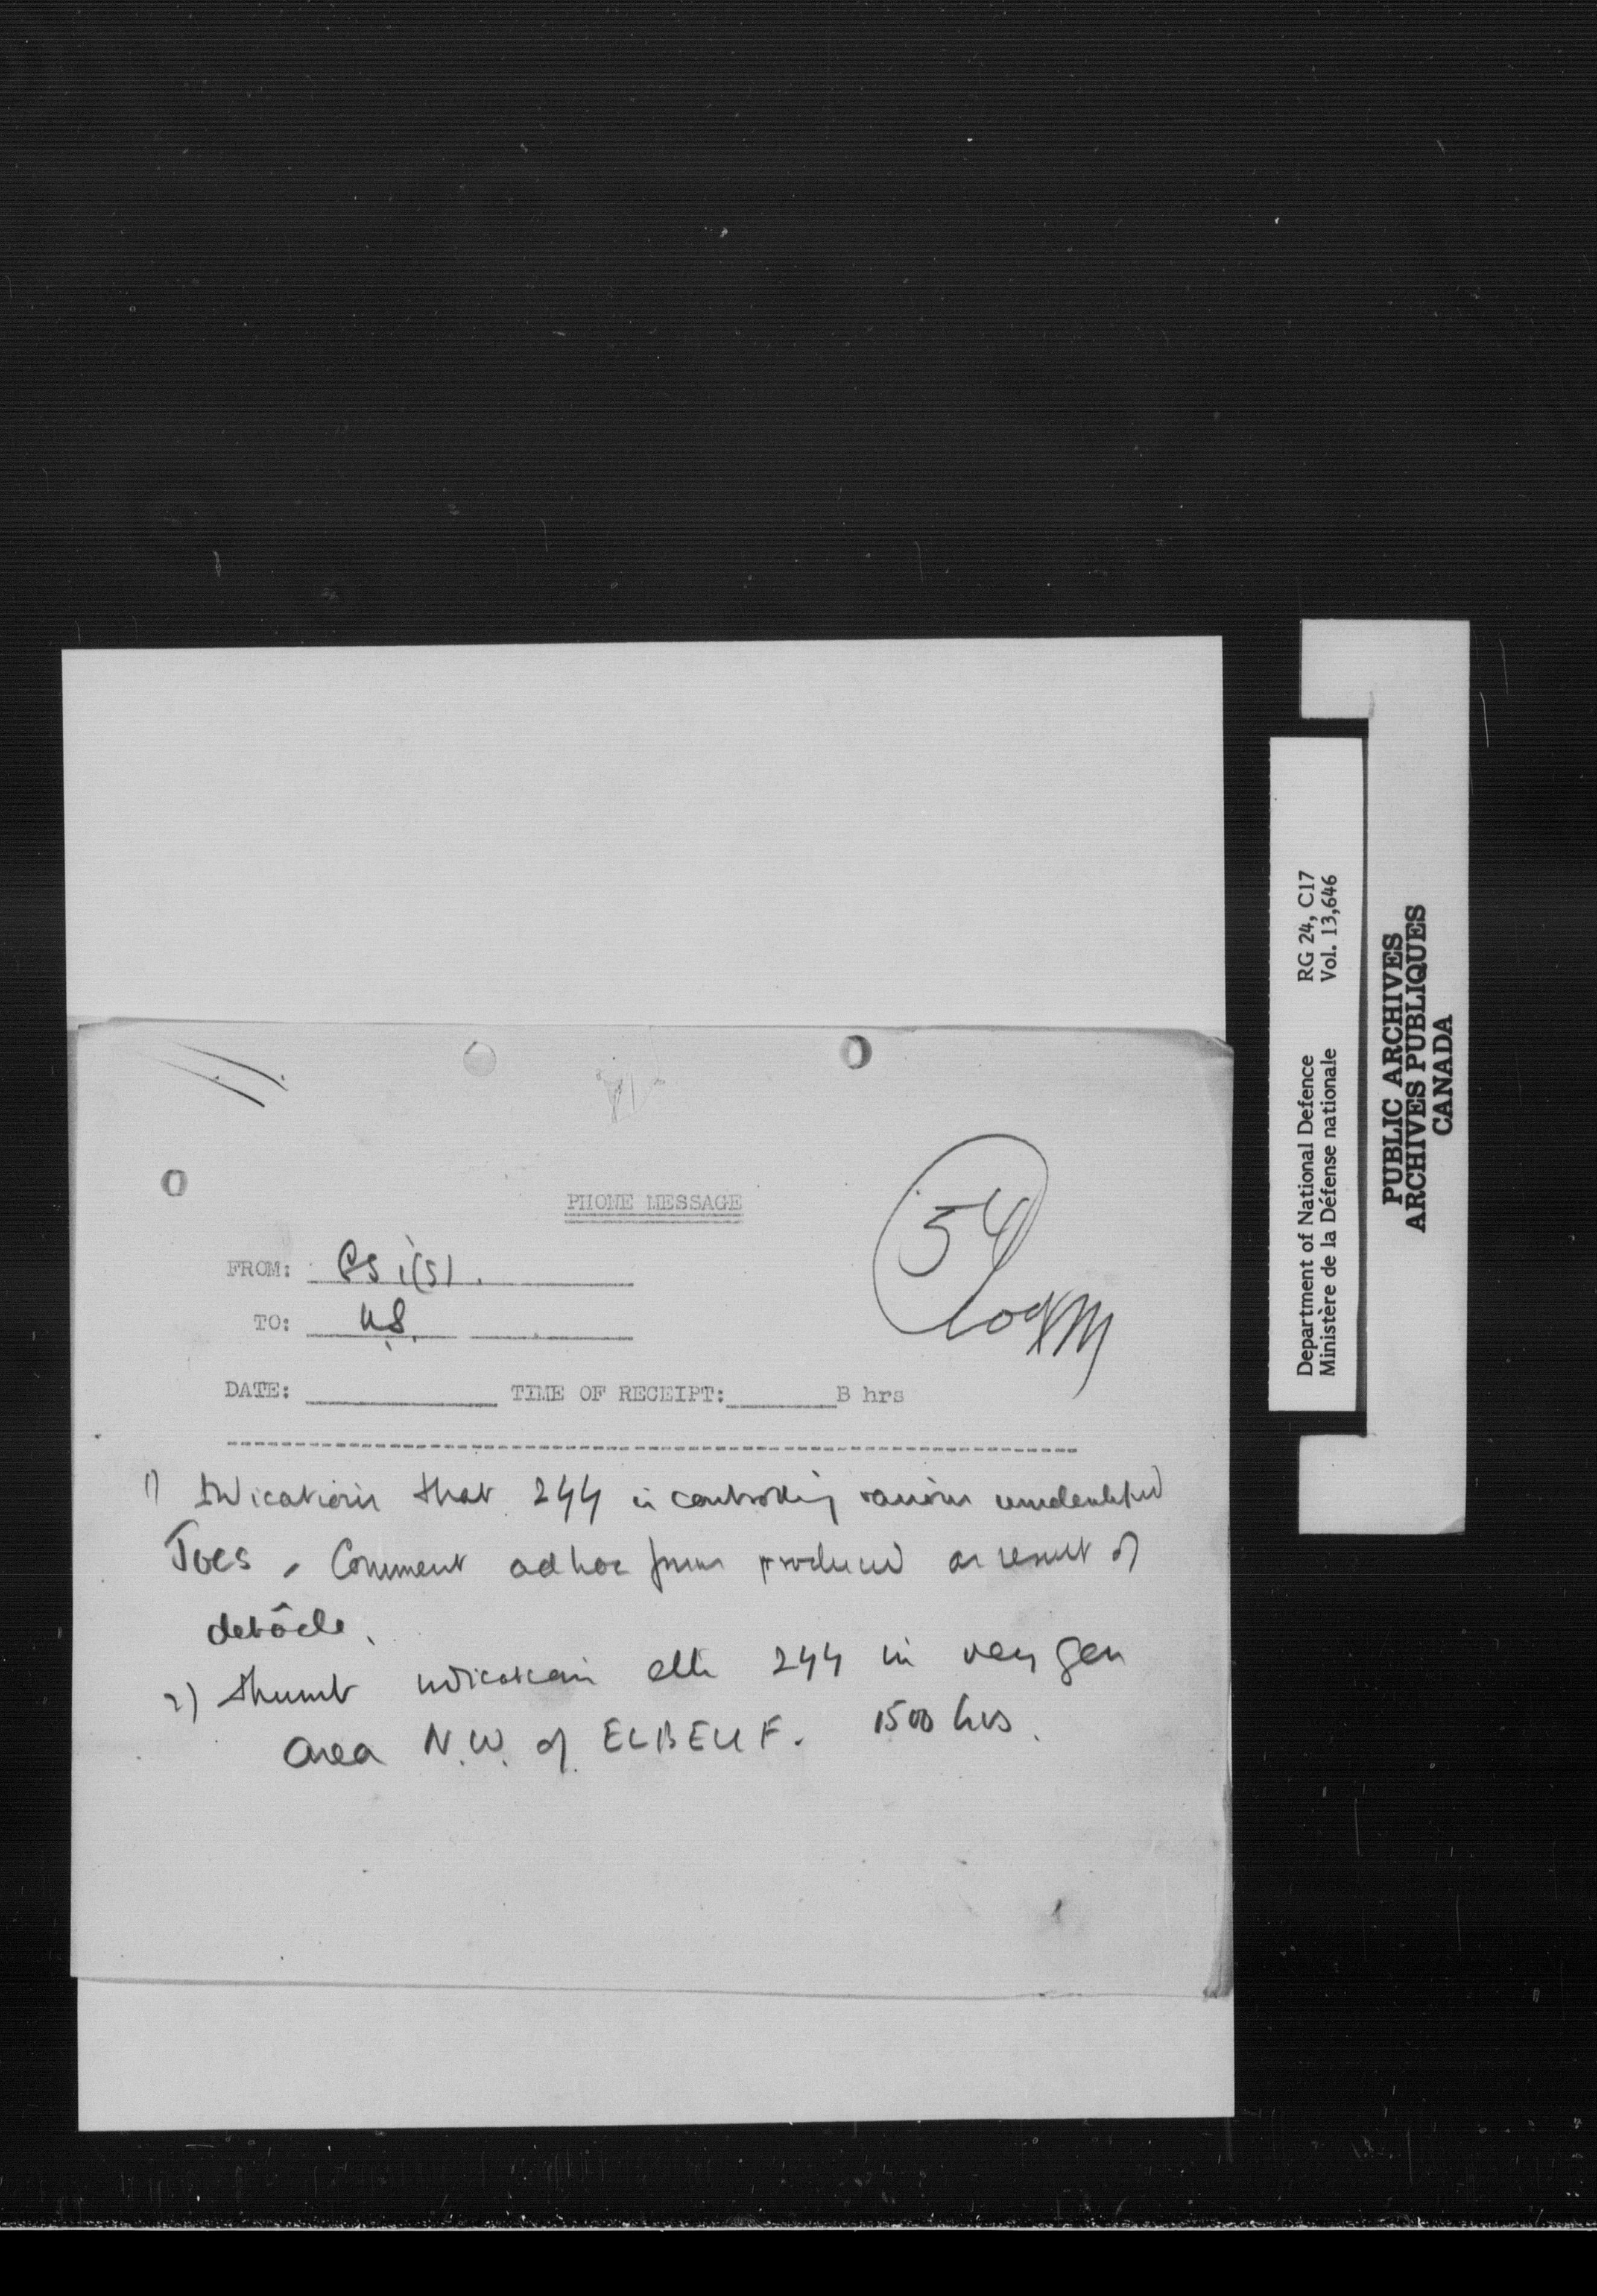 PHONE MESSAGE
54
FROM: GS I(S).
TO: U.S.
Log
DATE: TIME OF RECEIPT: B hrs
1) Indications that 244 is controlling various unidentified
Joes. Comment ad hoc produced as result of
debâcle.
2) indication 244 in very gen
area N.W. of ELBEUF. 1500 hrs.
Department of National Defence RG 24, C17
Ministère de la Défense nationale Vol. 13,646
PUBLIC ARCHIVES
ARCHIVES PUBLIQUES
CANADA